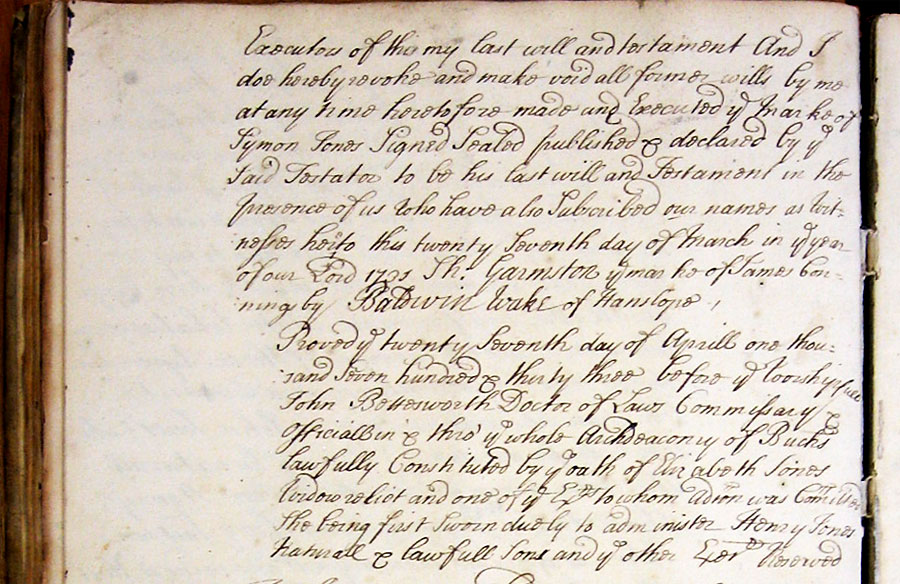 Executors of this my last will and testament And I
doe hereby revoke and make void all former wills by me
at any time heretofore made and Executed ye Marke of
Symon Jones Signed Sealed published & declared by ye
Said Testator to be his last will and Testament in the
presence of us who have also Subscribed our names as wit-
nesses hereto this twenty Seventh day of March in ye year
of our Lord Th: Garmston ye marke of James Con-
ningsby Baldwin Wake of Hanslope
Proved ye twenty Seventh day of Aprill one thou-
sand Seven hundred & thirty three before ye worshipfull
John Bettesworth Doctor of Laws Commissary &
Officiall in & thro' ye whole Archdeaconry of Bucks
lawfully Constituted by ye oath of Elizabeth Jones
Widow relict and one of ye Exrs to whom Adtion was Comitted
She being first Sworn duely to administer Henry Jones
natural & lawfull Sone and ye other Exer Reserved